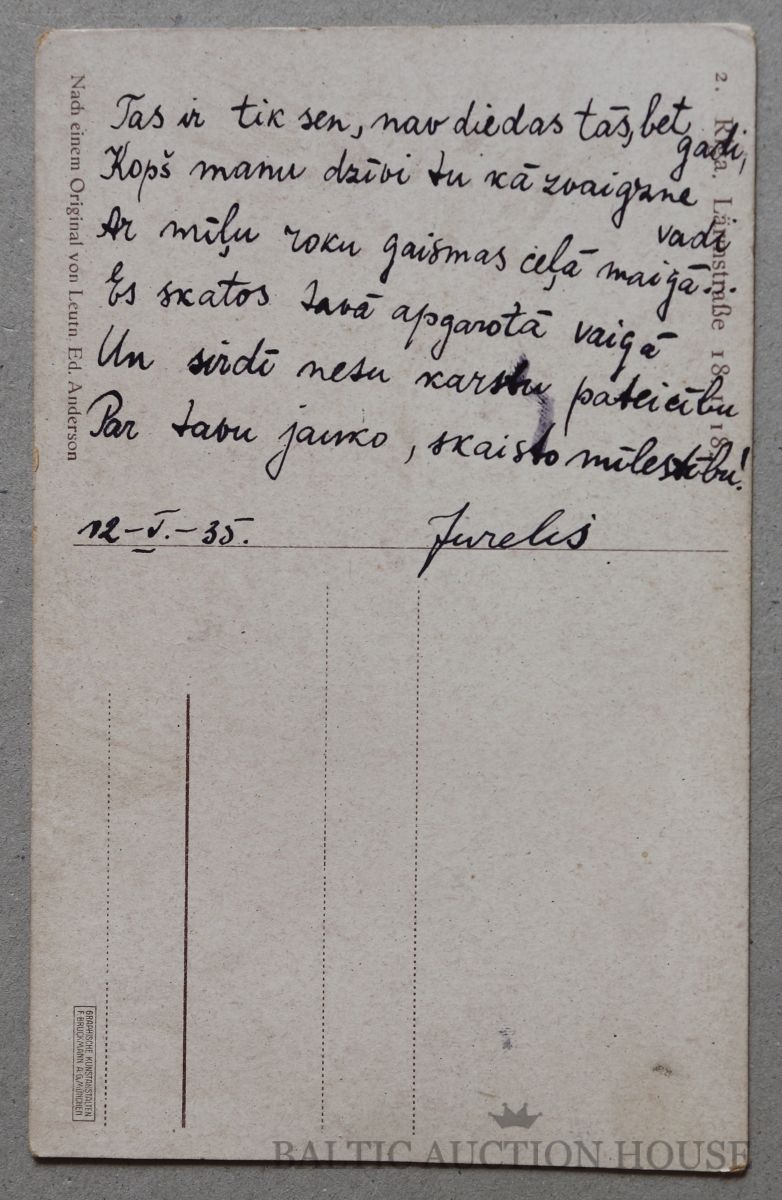 Tas ir tik sen, nav diedas tās, bet gadi,
Kopš manu dzīvi tu kā zvaigzne vadi
Ar mīļu roku gaismas ceļā maigā...
Es skatos tavā apgarotā vaigā
Un sirdī nesu karstu pateicību
Par tavu jauko, skaisto mīlestību!
12-V.-35. Jurelis
2. Riga. Lärmstraße
Nach einem Original von Leutn. Ed. Anderson
GRAPHISCHE KUNSTANSTALTEN
F. BRUCKMANN A.G. MÜNCHEN
BALTIC AUCTION HOUSE